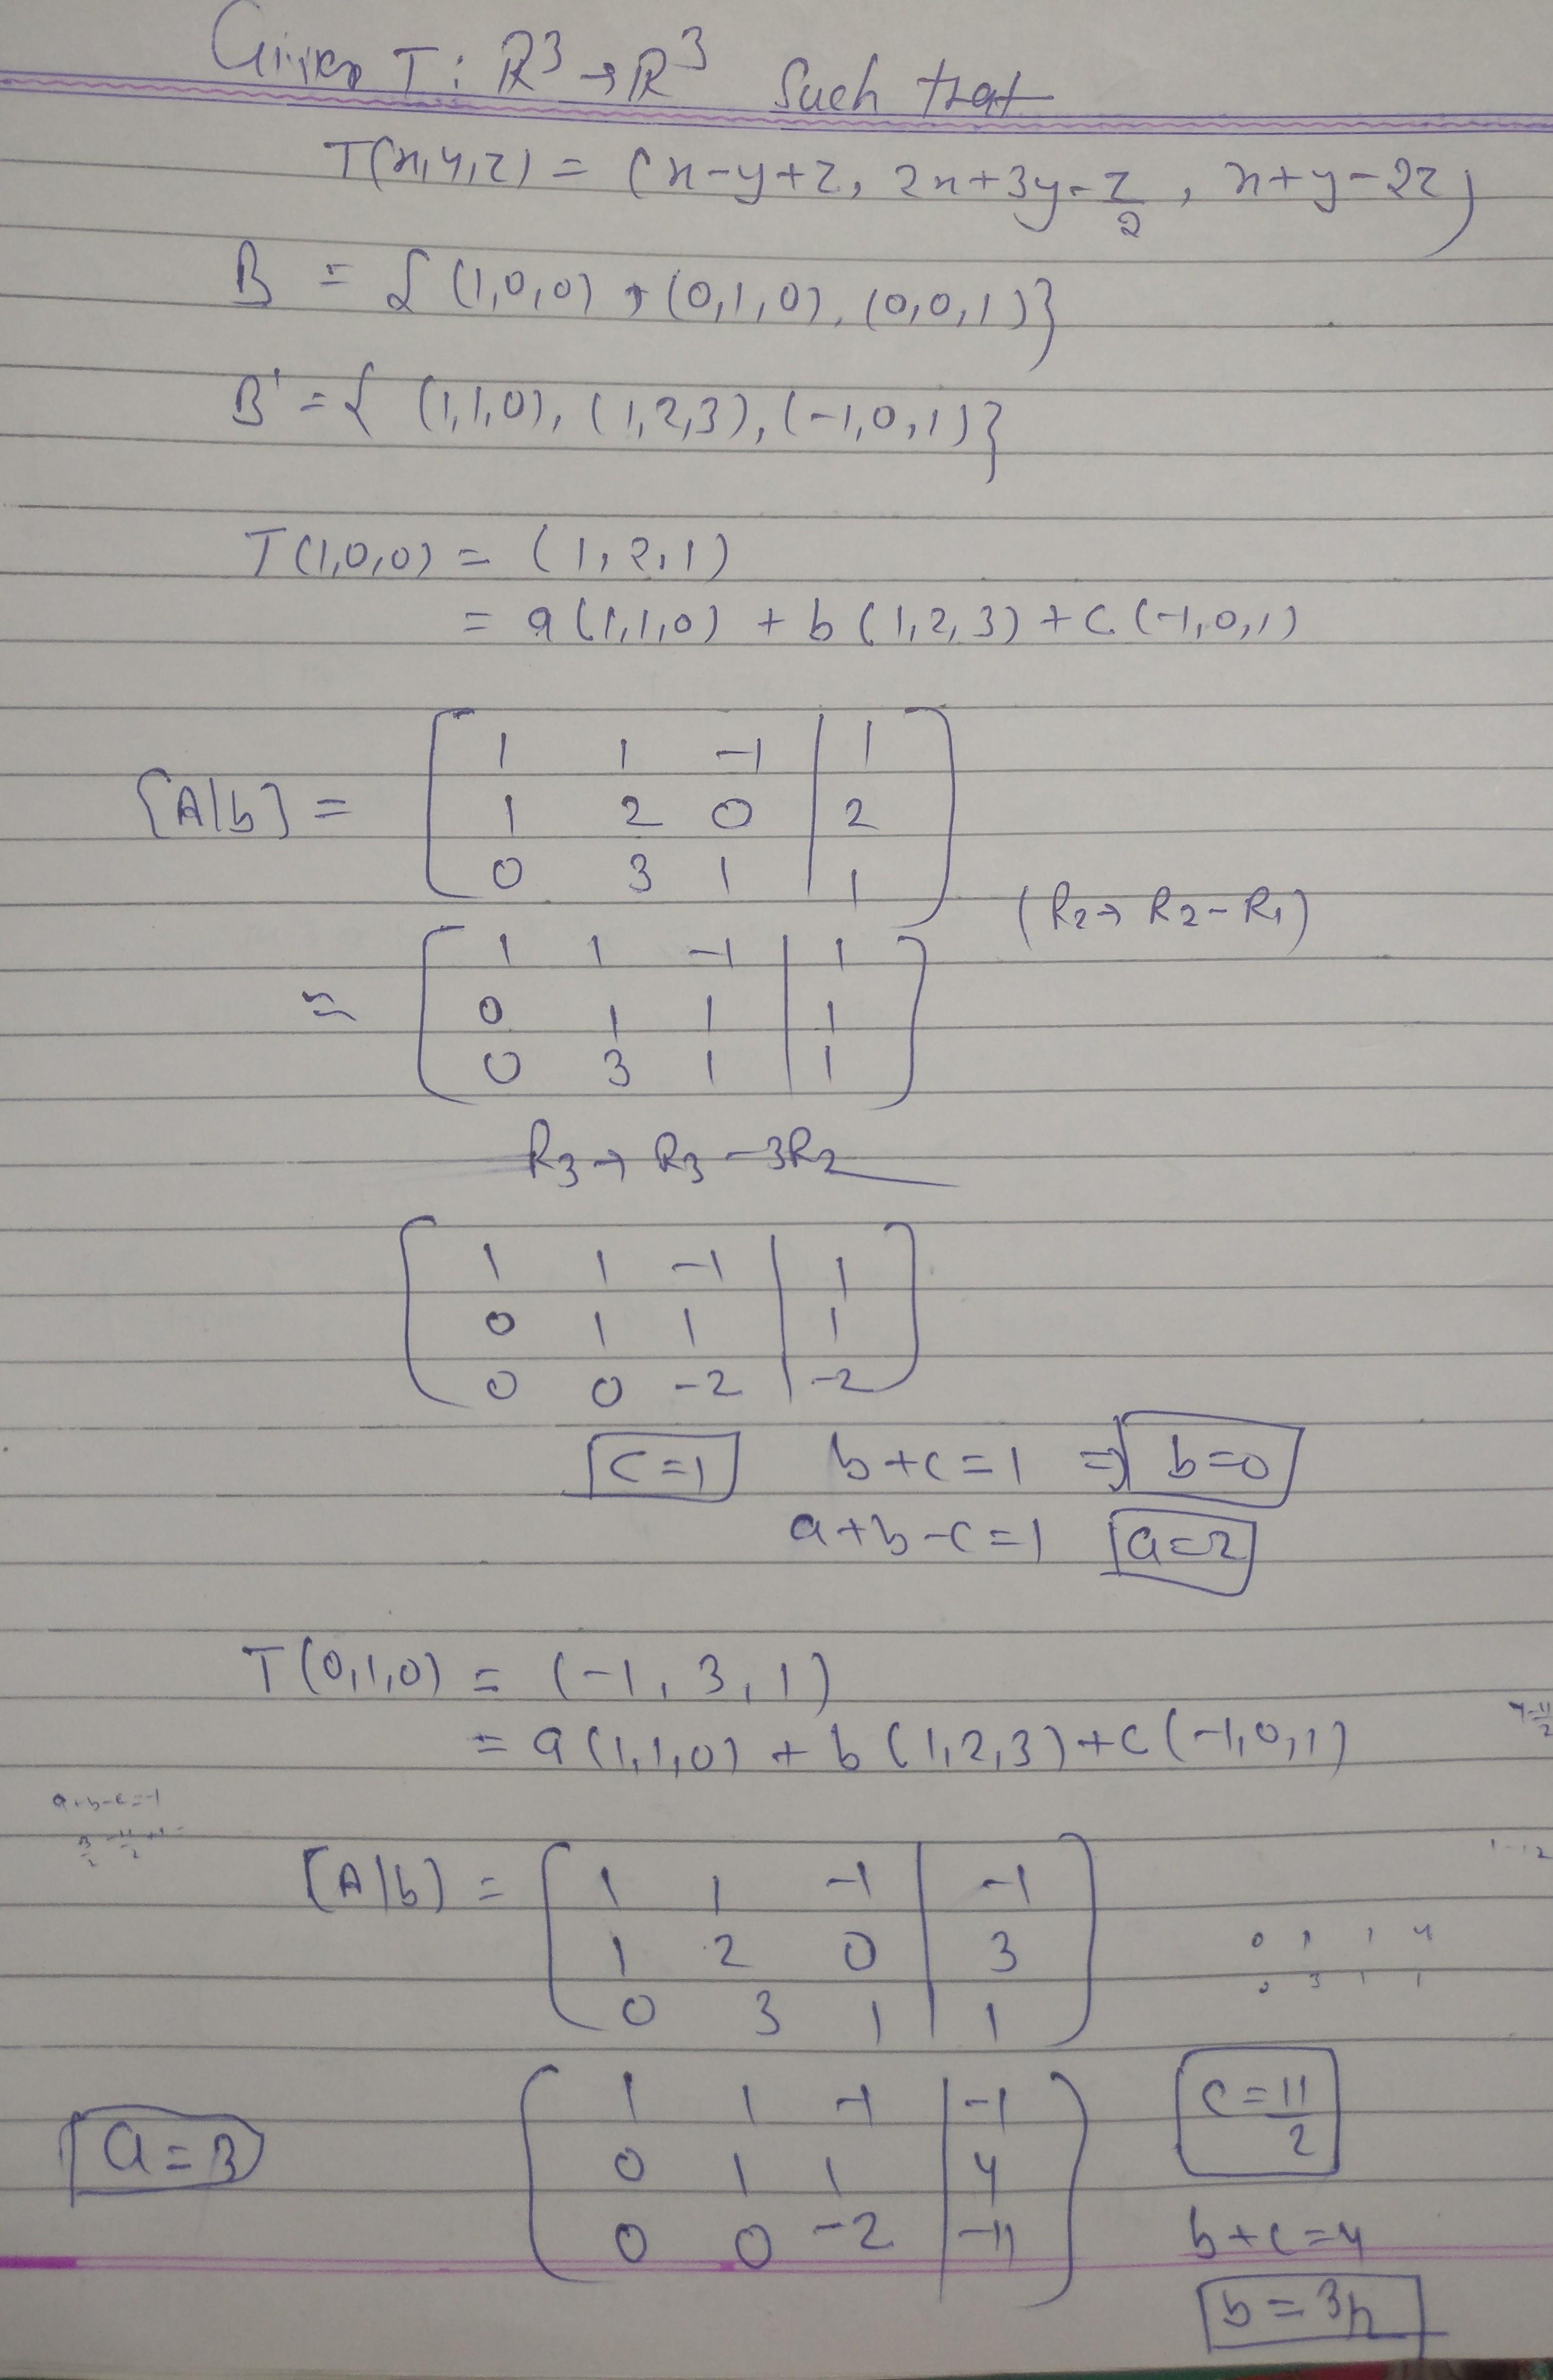 Given T: R³→R³ Such that
T(x,y,z) = (x-y+z, 2x+3y-z/2, x+y-2z)
B = {(1,0,0), (0,1,0), (0,0,1)}
B' = {(1,1,0), (1,2,3), (-1,0,1)}
T(1,0,0) = (1,2,1)
= a(1,1,0) + b(1,2,3) + c(-1,0,1)
[A|b] =
1 1 -1 | 1
1 2 0 | 2
0 3 1 | 1
(R₂→R₂-R₁)
≈
1 1 -1 | 1
0 1 1 | 1
0 3 1 | 1
R₃→R₃-3R₂
1 1 -1 | 1
0 1 1 | 1
0 0 -2 | -2
c=1 b+c=1 ⇒ b=0
a+b-c=1 a=2
T(0,1,0) = (-1,3,1)
= a(1,1,0) + b(1,2,3) + c(-1,0,1)
a+b-c=-1
[A|b] =
1 1 -1 | -1
1 2 0 | 3
0 3 1 | 1
0 1 1 4
0 3 1 1
1 1 -1 | -1
0 1 1 | 4
0 0 -2 | -11
c=11/2
a=3
b+c=4